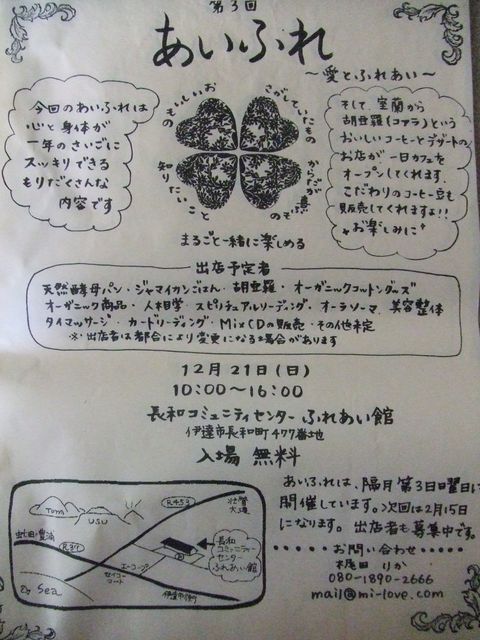 第3回
あいふれ
～愛とふれあい～
今回のあいふれは
心と身体が
一年のさいごに
スッキリできる
もりだくさんな
内容です
のもいしいお
さがしていたもの
知りたいこと
からだが
まるごと一緒に楽しめる
そして、室蘭から
胡亜羅(コアラ)という
おいしいコーヒーとデザートの
お店が一日カフェを
オープンしてくれます
こだわりのコーヒー豆も
販売してくれますよ!!
お楽しみに
出店予定者
天然酵母パン・ジャマイカンごはん・胡亜羅・オーガニックコットングッズ
オーガニック商品・人相学・スピリチュアルリーディング・オーラソーマ・美容整体
タイマッサージ・カードリーディング・MixCDの販売・その他未定
※出店者は都合により変更になる場合があります
12月21日(日)
10:00～16:00
長和コミュニティセンター ふれあい館
伊達市長和町477番地
入場 無料
あいふれは、隔月第3日曜日に
開催しています。次回は2月15日
になります。出店者も募集中です。
・・・・・お問い合わせ・・・・・
梶田 りか
080-1890-2666
mail@mi-love.com
R453
壮瞥
大滝
USU
虻田・豊浦
R37
長和
コミュニティー
センター
ふれあい館
エーコープ
セイコー
マート
伊達市街
Sea